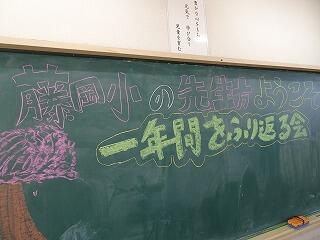 藤岡小の先生方ようこそ
一年間をふり返る会